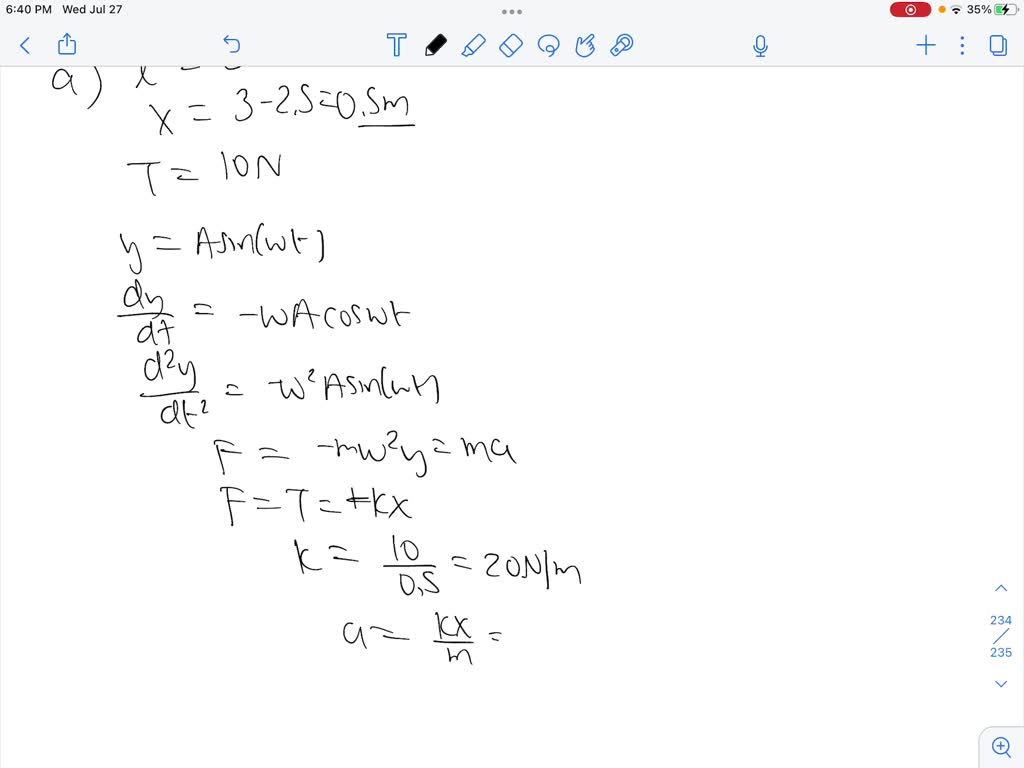 6:40 PM Wed Jul 27
35%
a)
x = 3 - 2.5 = 0.5m
T = 10N
y = Asin(wt)
dy/dt = -wAcoswt
d²y/dt² = -w²Asin(wt)
F = -mw²y = ma
F = T = +kx
k = 10/0.5 = 20N/m
a = kx/m =
234
/
235